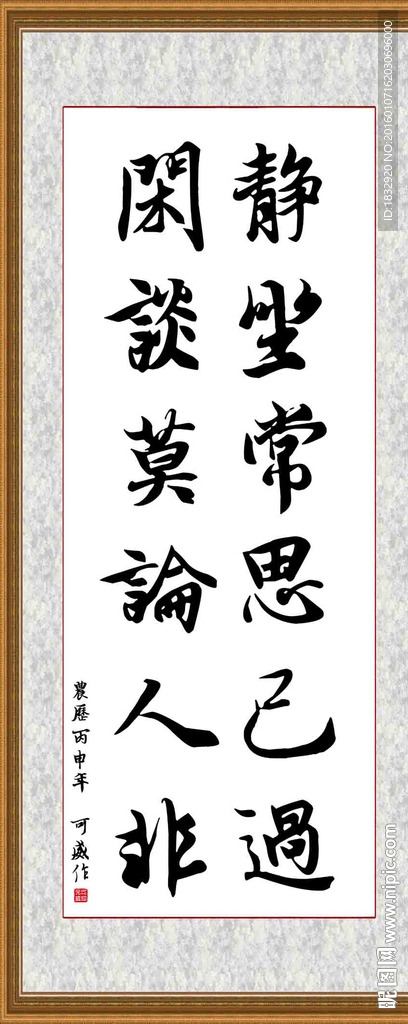 静坐常思己過
閑談莫論人非
農歷丙申年 可威作
ID:1832920 NO:20160107162030696000
昵图网 www.nipic.com